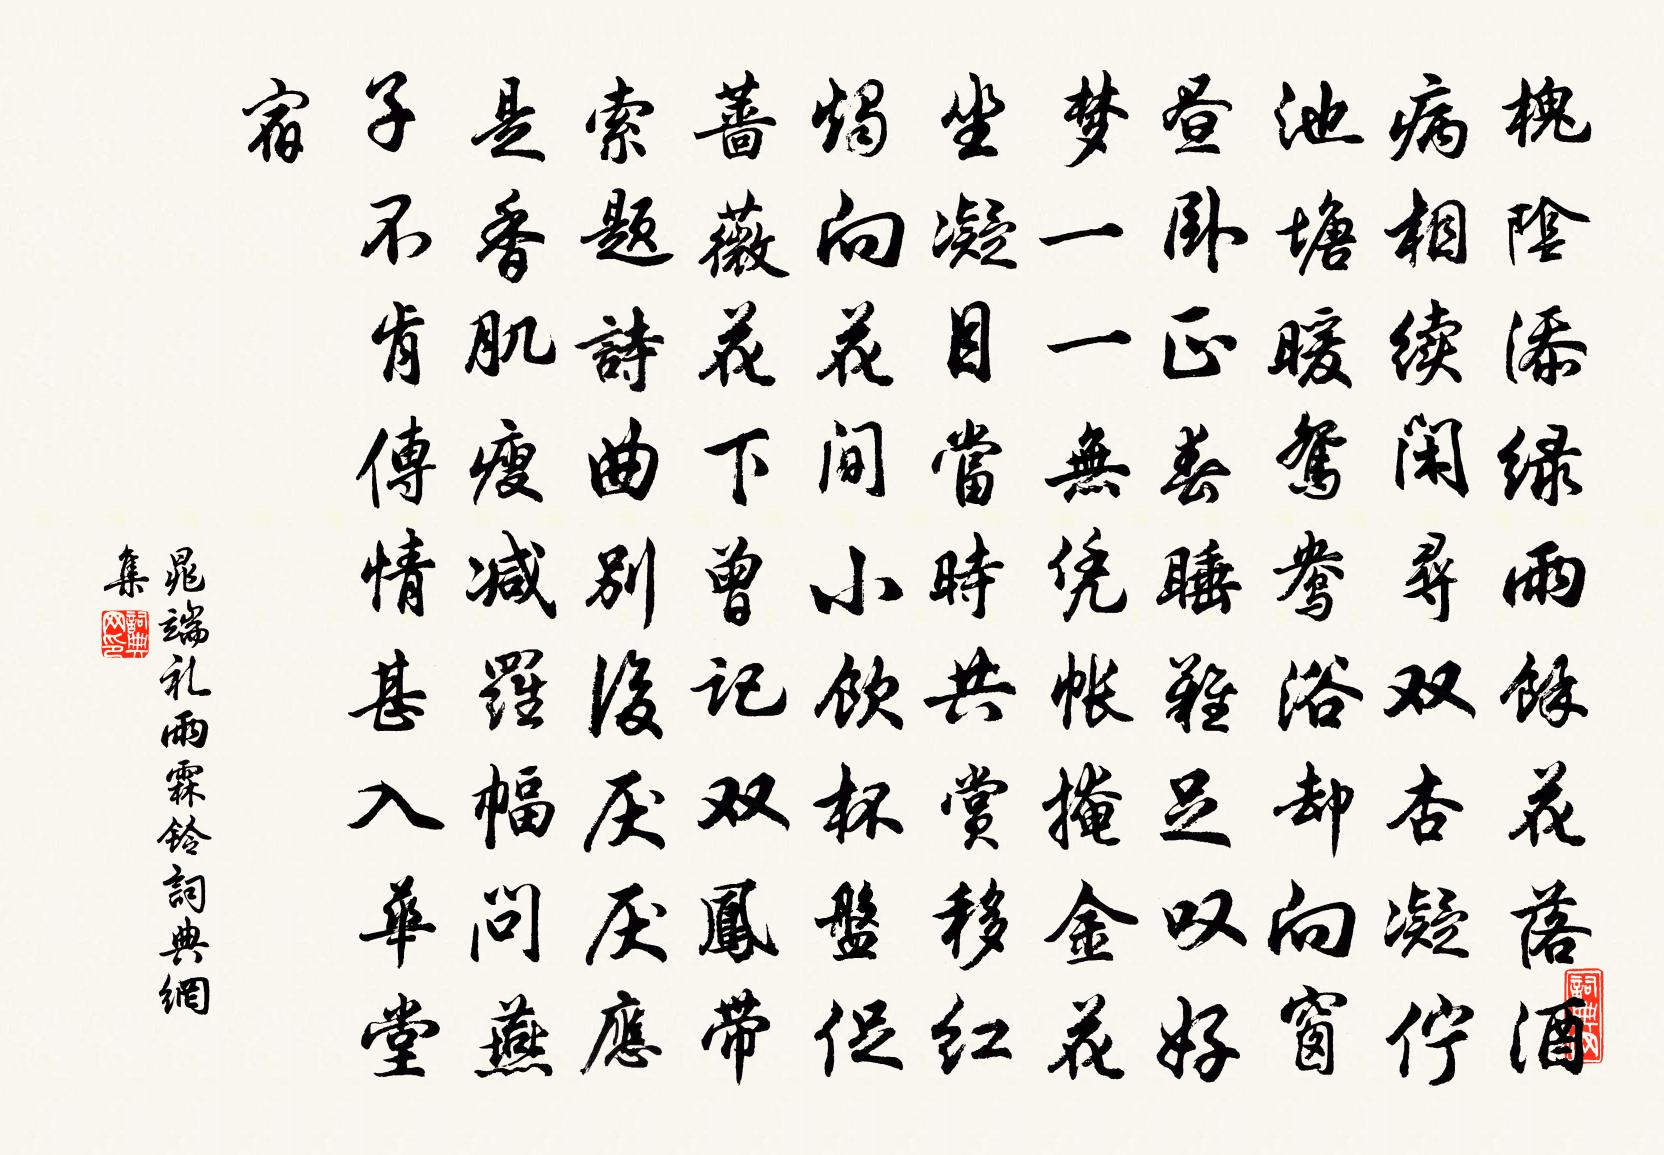 槐陰添绿雨餘花落酒
病相续闲尋双杏凝佇
池塘暖鴛鴦浴却向窗
昼卧正春睡難足叹好
梦一一無凭帐掩金花
坐凝目當時共賞移红
燭向花间小飲杯盤促
蔷薇花下曾记双鳳带
索题詩曲别後厌厌應
是香肌瘦减羅幅问燕
子不肯傳情甚入華堂
宿
晁端礼雨霖鈴詞典網
集
詞典网印
詞典网